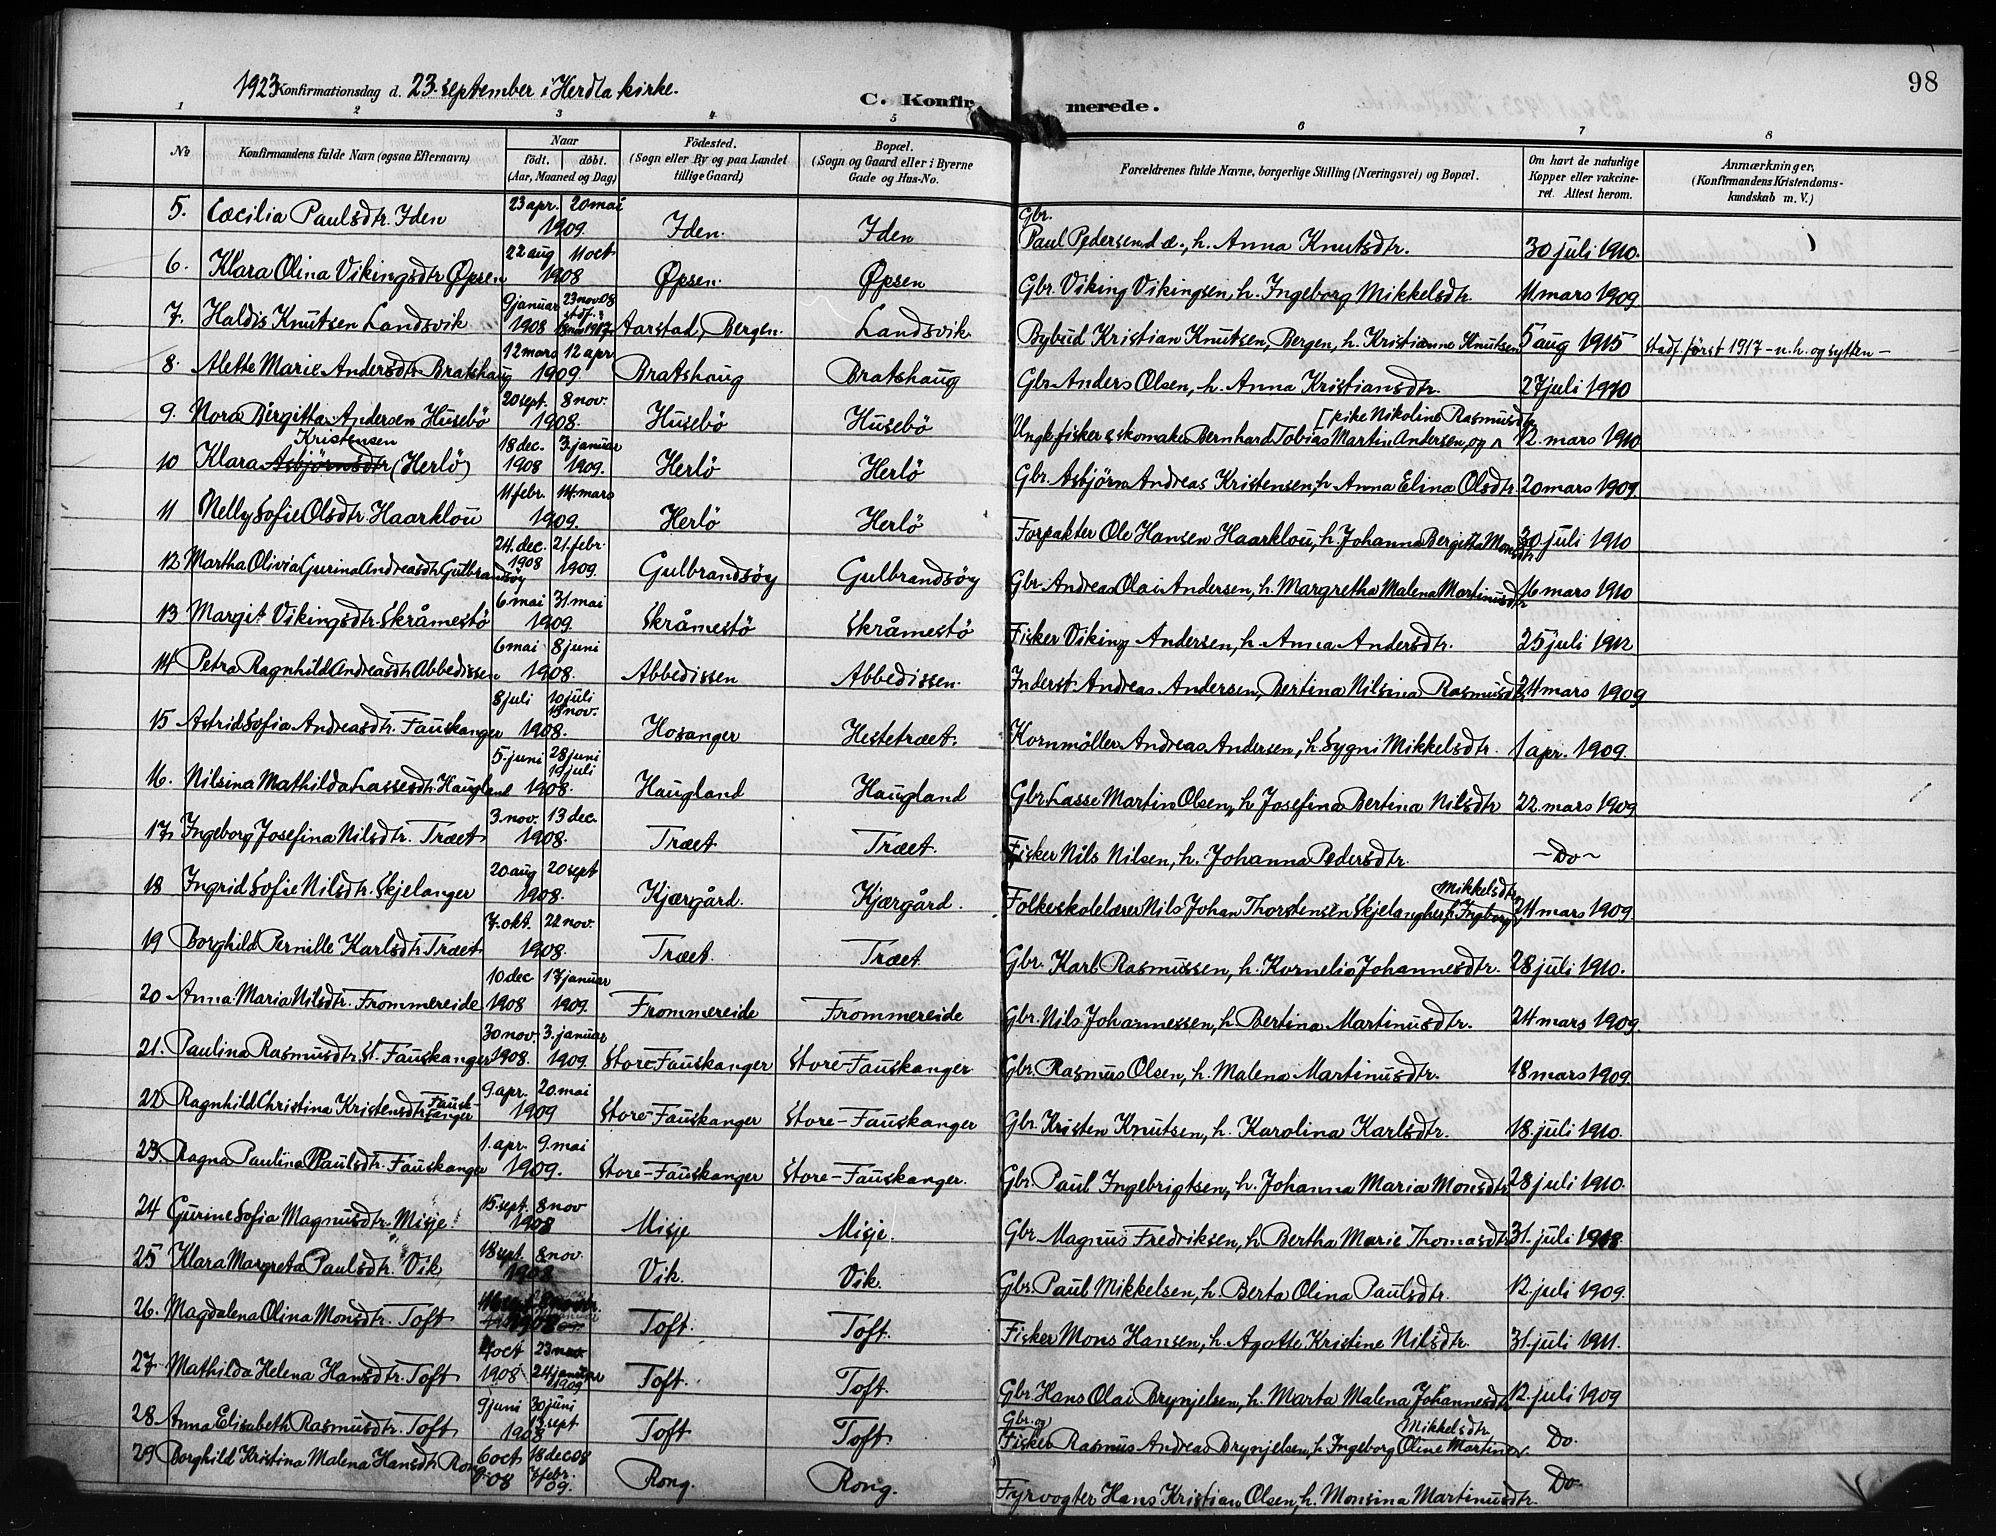 98
1923 Konfirmationsdag d. 23. september i Herdla kirke.
C. Konfirmerede.
1 2 3 4 5 6 7 8
No. Konfirmandens fulde Navn (ogsaa Efternavn) Naar födt. döbt. (Aar, Maaned og Dag) Födested. (Sogn eller By og paa Landet tillige Gaard) Bopæl. (Sogn og Gaard eller i Byerne Gade og Hus-No. Forældrenes fulde Navne, borgerlige Stilling (Næringsvei) og Bopæl. Om havt de naturlige Kopper eller vakcineret. Attest herom. Anmærkninger, (Konfirmandens Kristendomskundskab m. V.)
5. Cæcilia Paulsdtr. Iden 23 apr. 20 mai 1909. Iden. Iden Gbr. Paul Pedersen d.æ., h. Anna Knutsdtr. 30 juli 1910.
6. Klara Olina Vikingsdtr Øpsen 22 aug 11 oct 1908 Øpsen. Øpsen Gbr. Viking Vikingsen, h. Ingeborg Mikkelsdtr. 11 mars 1909
7. Haldis Knutsen Landsvik 9 januar 1908 23 nov. 08 stdf. 1917 Aarstad, Bergen. Landsvik Bybud Kristian Knutsen, Bergen, h. Kristianne Knutsen 5 aug 1915 stadf. först 1917 - n.h. og sytten -
8. Alette Marie Andersdtr Bratshaug 12 mars 12 apr 1909. Bratshaug Bratshaug Gbr. Anders Olsen, h. Anna Kristiansdtr. 27 juli 1910
9. Nora Bergitta Andersen Husebö 20 sept. 8 nov. 1908. Husebö Husebö Ungk. fisker & skomaker Bernhard Tobias Martin Andersen, og [pike Nikoline Rasmusdtr 12. mars 1910
10 Klara Asbjörnsdtr Kristensen (Herlö) 18 dec. 1908 3. januar 1909. Herlö Herlö Gbr. Asbjörn Andreas Kristensen, h. Anna Elina Olsdtr. 20 mars 1909.
11 Nelly Sofie Olsdtr. Haarklou 11 febr. 14. mars 1909. Herlö Herlö Forpakter Ole Hansen Haarklou, h. Johanna Bergitta Monsdtr 30 juli 1910
12 Martha Olivia Gurina Andreasdtr Gulbrandsöy 24. dec. 1908 21. febr. 1909. Gulbrandsöy Gulbrandsöy Gbr. Andreas Olai Andersen, h. Margretha Malena Martinusdtr 16 mars 1910
13 Margit Vikingsdtr. Skråmestö 6 mai 31 mai 1909. Skråmestö Skråmestö Fisker Viking Andersen, h. Anna Andersdtr. 25 juli 1912
14 Petra Ragnhild Andreasdtr Abbedissen 6 mai 8 juni 1908. Abbedissen Abbedissen. Inderst. Andreas Andersen, Bertina Nilsina Rasmusdtr 24 mars 1909
15 Astrid Sofia Andreasdtr. Fauskanger 8 juli 10 juli 15 nov. 1908. Hosanger Hestetræet. Kornmöller Andreas Andersen, h. Sygni Mikkelsdtr. 1 apr. 1909.
16. Nilsina Mathilda Lassesdtr. Haugland 5. juni 28 juni 19 juli 1908. Haugland Haugland Gbr. Lasse Martin Olsen, h. Josefina Bertina Nilsdtr 22. mars 1909
17. Ingeborg Josefina Nilsdtr. Træet 3. nov. 13 dec. 1908. Træet Træet. Fisker Nils Nilsen, h. Johanna Pedersdtr. -Do-
18 Ingrid Sofie Nilsdtr. Skjelanger 20 aug 20 sept 1908. Kjærgård. Kjærgård. Folkeskolelærer Nils Johan Thorstensen Skjelanger, h. Ingeborg Mikkelsdtr. 24 mars 1909
19 Borghild Pernille Karlsdtr. Træet 7. okt. 22 nov. 1908. Træet. Træet. Gbr. Karl Rasmussen, h. Kornelia Johannesdtr. 28 juli 1910.
20 Anna Maria Nilsdtr. Frommereide 10 dec 1908 17 januar 1909. Frommereide Frommereide Gbr. Nils Johannessen, h. Bertina Martinusdtr. 24 mars 1909.
21. Paulina Rasmusdtr. St. Fauskanger 30 nov. 1908. 3. januar 1909. Store Fauskanger Store-Fauskanger Gbr. Rasmus Olsen, h. Malena Martinusdtr. 18 mars 1909.
22 Ragnhild Christina Kristensdtr. Fauskanger 9 apr. 20 mai 1909 Store-Fauskanger Store-Fauskanger Gbr. Kristen Knutsen, h. Karolina Karlsdtr. 18. juli 1910.
23. Ragna Paulina Paulsdtr. Fauskanger 1. apr. 9. mai 1909. Store-Fauskanger Store-Fauskanger. Gbr. Paul Ingebrigtsen, h. Johanna Maria Monsdtr 28 juli 1910.
24 Gurine Sofia Magnusdtr. Misje 15. sept. 8 nov 1908 Misje Misje. Gbr. Magnus Fredriksen, h. Bertha Marie Thomasdtr 31. juli
25 Klara Margreta Paulsdtr. Vik 18 sept. 8 nov. 1908 Vik. Vik. Gbr. Paul Mikkelsen, h. Berta Olina Paulsdtr. 12. juli 1909.
26. Magdalena Olina Monsdtr. Toft 1908 Toft. Toft. Fisker Mons Hansen, h. Agotte Kristine Nilsdtr. 31. juli 1911.
27. Mathilda Helena Hansdtr. Toft oct 1908 23 24 januar 1909 Toft. Toft. Gbr. Hans Olai Brynjelsen, h. Marta Malena Johannesdtr 12. juli 1909
28. Anna Elisabeth Rasmusdtr. Toft 9 juni 30 juni 13 sept 1908 Toft Toft Gbr. og Fisker Rasmus Andreas Brynjelsen, h. Ingeborg Oline Martine Mikkelsdtr. Do.
29 Borghild Kristina Malena Hansdtr. Rong 6 oct 08 18 dec 08 febr. 09. Rong. Rong. Fyrvogter Hans Kristian Olsen, h. Monsina Martinusdtr. Do